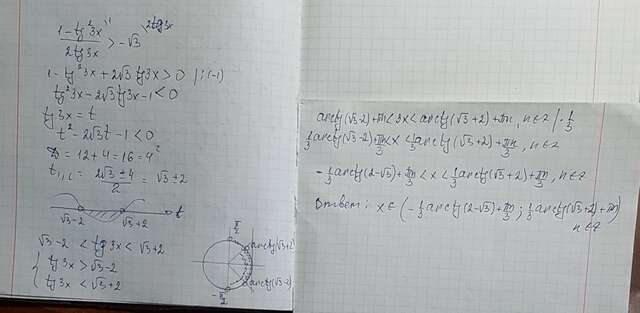 1 - tg²3x \1 / 2tg3x > -√3 \2tg3x
1 - tg²3x + 2√3 tg3x > 0 | :(-1)
tg²3x - 2√3 tg3x - 1 < 0
tg 3x = t
t² - 2√3t - 1 < 0
D = 12 + 4 = 16 = 4²
t₁,₂ = 2√3 ± 4 / 2 = √3 ± 2
√3-2 √3+2 t
√3 - 2 < tg 3x < √3 + 2
{ tg 3x > √3 - 2
tg 3x < √3 + 2
π/2
arctg(√3+2)
arctg(√3-2)
-π/2
arctg(√3-2) + πn < 3x < arctg(√3+2) + πn, n∈z | · 1/3
1/3 arctg(√3-2) + πn/3 < x < 1/3 arctg(√3+2) + πn/3, n∈z
- 1/3 arctg(2-√3) + πn/3 < x < 1/3 arctg(√3+2) + πn/3, n∈z
Ответ: x∈(- 1/3 arctg(2-√3) + πn/3; 1/3 arctg(√3+2) + πn/3)
n∈z